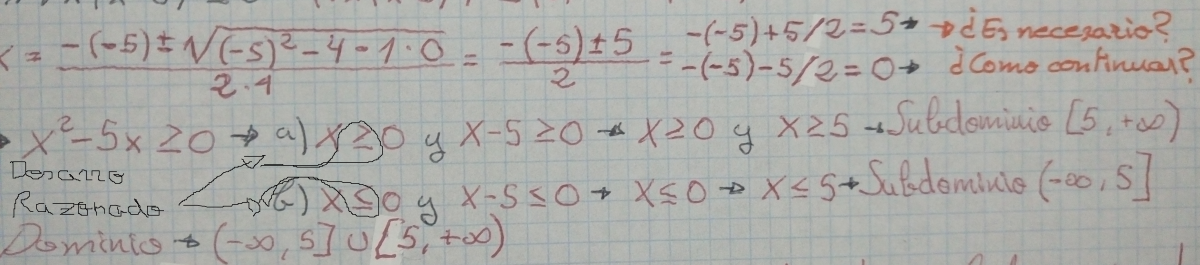 x = (-(-5) ± √((-5)² - 4 - 1 · 0)) / (2 · 1) = (-(-5) ± 5) / 2 = -(-5) + 5/2 = 5 → → ¿Es necesario?
-(-5) - 5/2 = 0 → ¿Como continuar?
→ x² - 5x ≥ 0 → a) x ≥ 0 y x - 5 ≥ 0 → x ≥ 0 y x ≥ 5 → Subdominio [5, +∞)
Desarro
Razonado b) x ≤ 0 y x - 5 ≤ 0 → x ≤ 0 → x ≤ 5 → Subdominio (-∞, 5]
Dominio → (-∞, 5] ∪ [5, +∞)